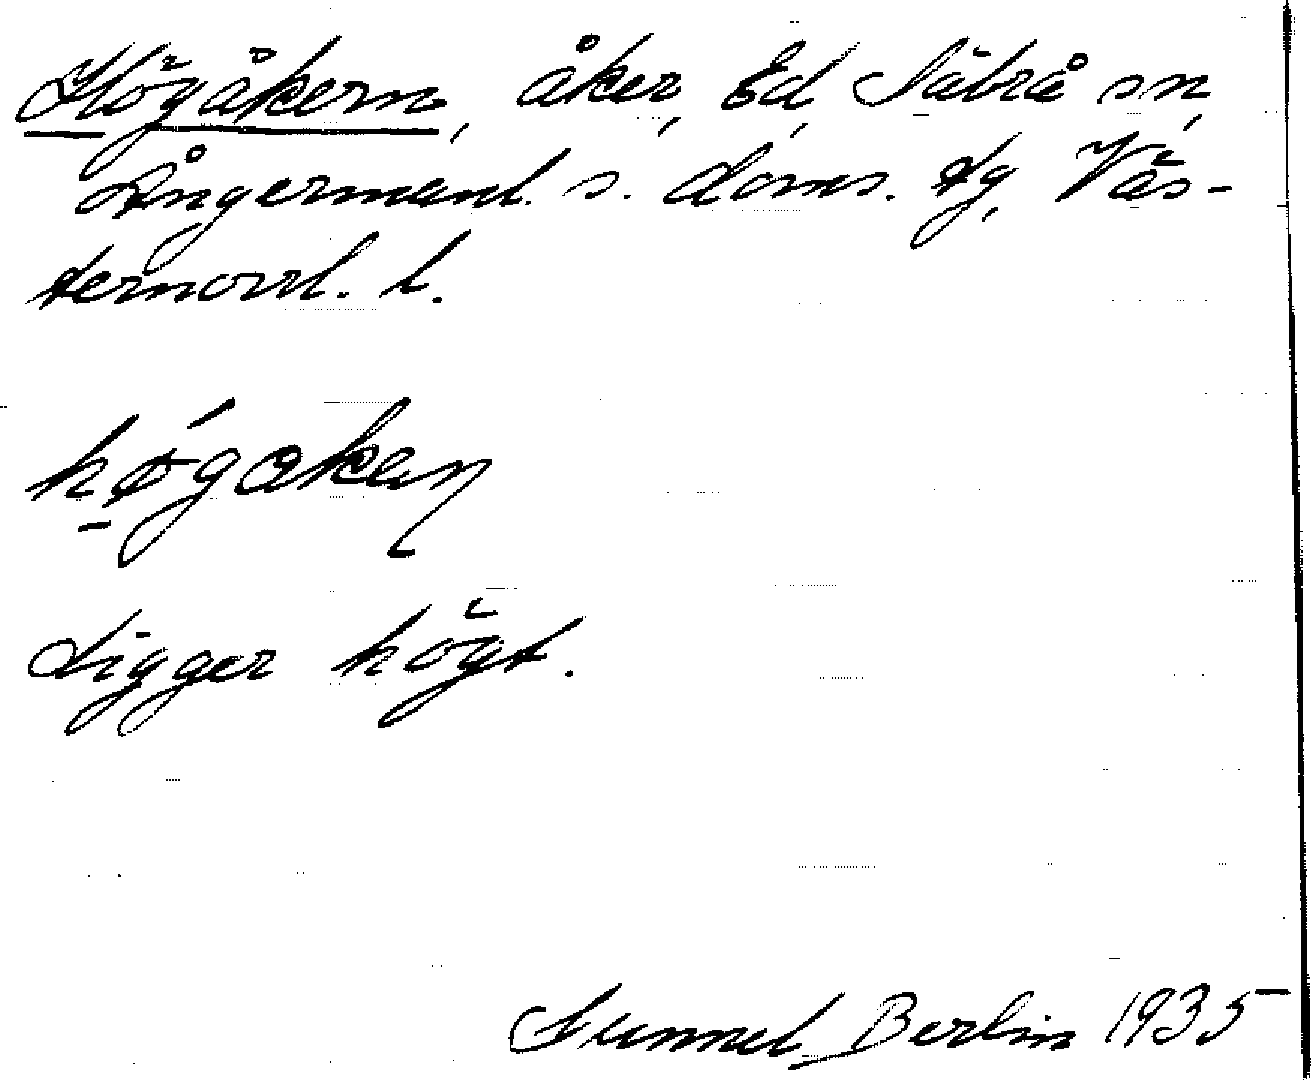 Högåkern, åker, Ed, Säbrå sn,
Ångermanl. s. doms. tg, Väs-
ternorrl. l.
høgakaṇ
Ligger högt.
Gunnel Berlin 1935